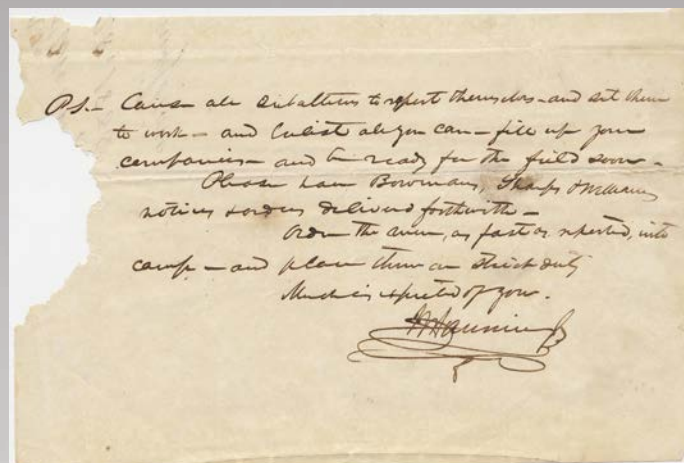 P.S.- Cause all subalterns to report themselves - and set them
to work - and Enlist all you can - fill up your
companies - and be ready for the field soon -
Please have Bowmans, Sharps &
notices & orders delivered forthwith -
Order the men, as fast as reported, into
camp - and place them on strict duty
Much is expected of you.